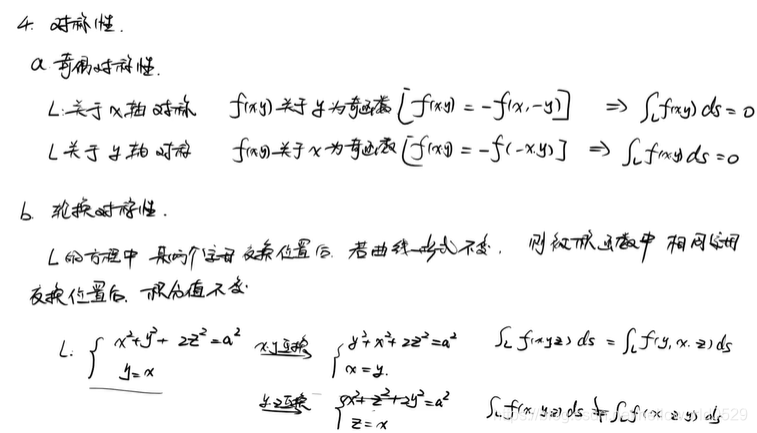 4. 对称性.
a 奇偶对称性.
L: 关于x轴对称 f(x,y)关于y为奇函数[f(x,y) = -f(x,-y)] ⇒ ∫_L f(x,y) ds = 0
L关于y轴对称 f(x,y)关于x为奇函数[f(x,y) = -f(-x,y)] ⇒ ∫_L f(x,y) ds = 0
b. 轮换对称性.
L的方程中 某两个字母交换位置后. 若曲线形式不变. 则被积函数中 相同字母
交换位置后. 积分值不变
L: { x²+y²+2z²=a² y=x x,y互换→ { y²+x²+2z²=a² x=y. ∫_L f(x,y,z) ds = ∫_L f(y,x,z) ds
y,z互换→ { x²+z²+2y²=a² z=x ∫_L f(x,y,z) ds ≠ ∫_L f(x,z,y) ds